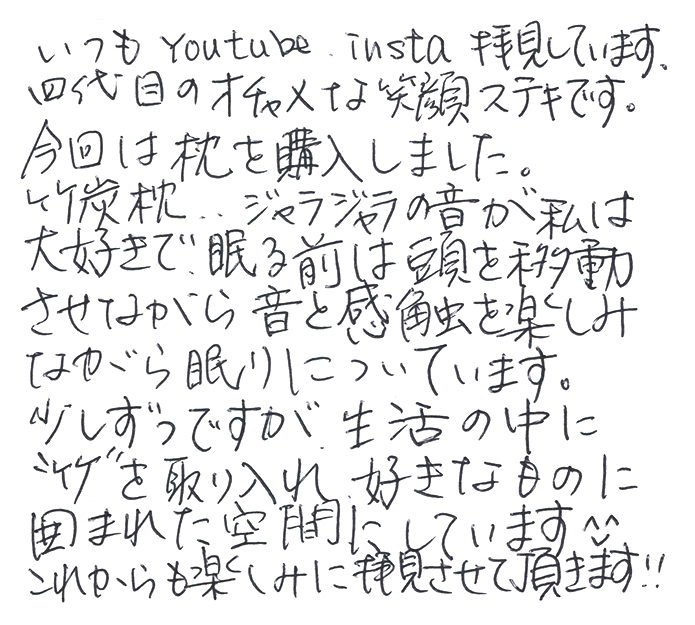 いつも Youtube. insta 拝見しています、
四代目のオチャメな笑顔ステキです。
今回は枕を購入しました。
竹炭枕‥ジャラジャラの音が私は
大好きで、眠る前は頭を移動
させながら音と感触を楽しみ
ながら眠りについています。
少しずつですが、生活の中に
"竹"を取り入れ、好きなものに
囲まれた空間にしています^^
これからも楽しみに拝見させて頂きます!!